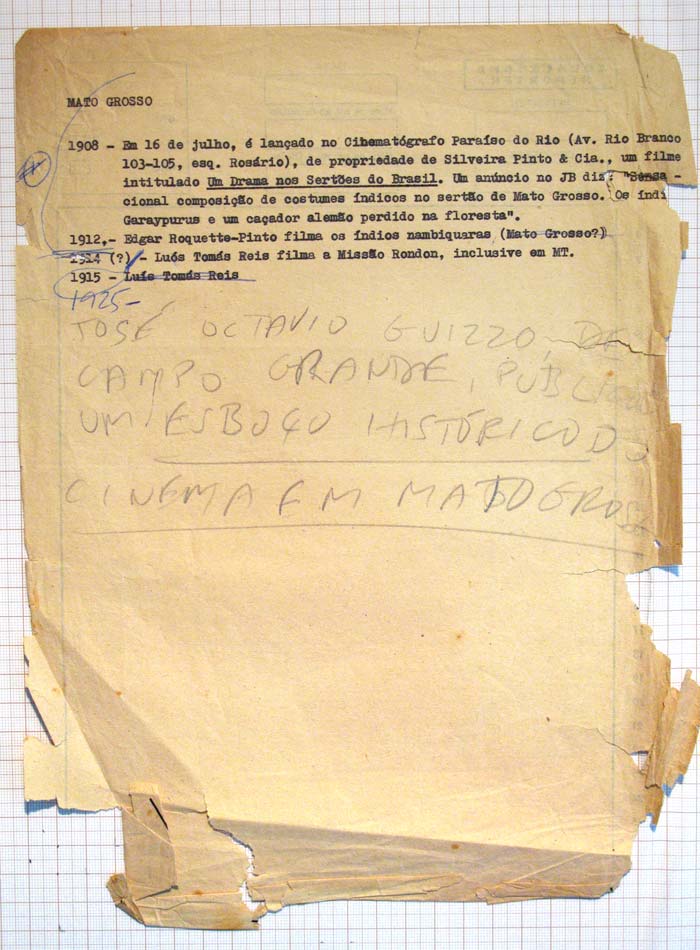 MATO GROSSO
1908 - Em 16 de julho, é lançado no Cibematógrafo Paraíso do Rio (Av. Rio Branco
103-105, esq. Rosário), de propriedade de Silveira Pinto & Cia., um filme
intitulado Um Drama nos Sertões do Brasil. Um anúncio no JB diz: "Sensa -
cional composição de costumes índicos no sertão de Mato Grosso. Os índi
Garaypurus e um caçador alemão perdido na floresta".
1912,- Edgar Roquette-Pinto filma os índios nambiquaras (Mato Grosso?)
1914 (?) - Luós Tomás Reis filma a Missão Rondon, inclusive em MT.
1915 - Luís Tomás Reis
1925-
JOSÉ OCTAVIO GUIZZO, DE
CAMPO GRANDE, PUBLICOU
UM ESBOÇO HISTÓRICO DO
CINEMA EM MATO GROSSO